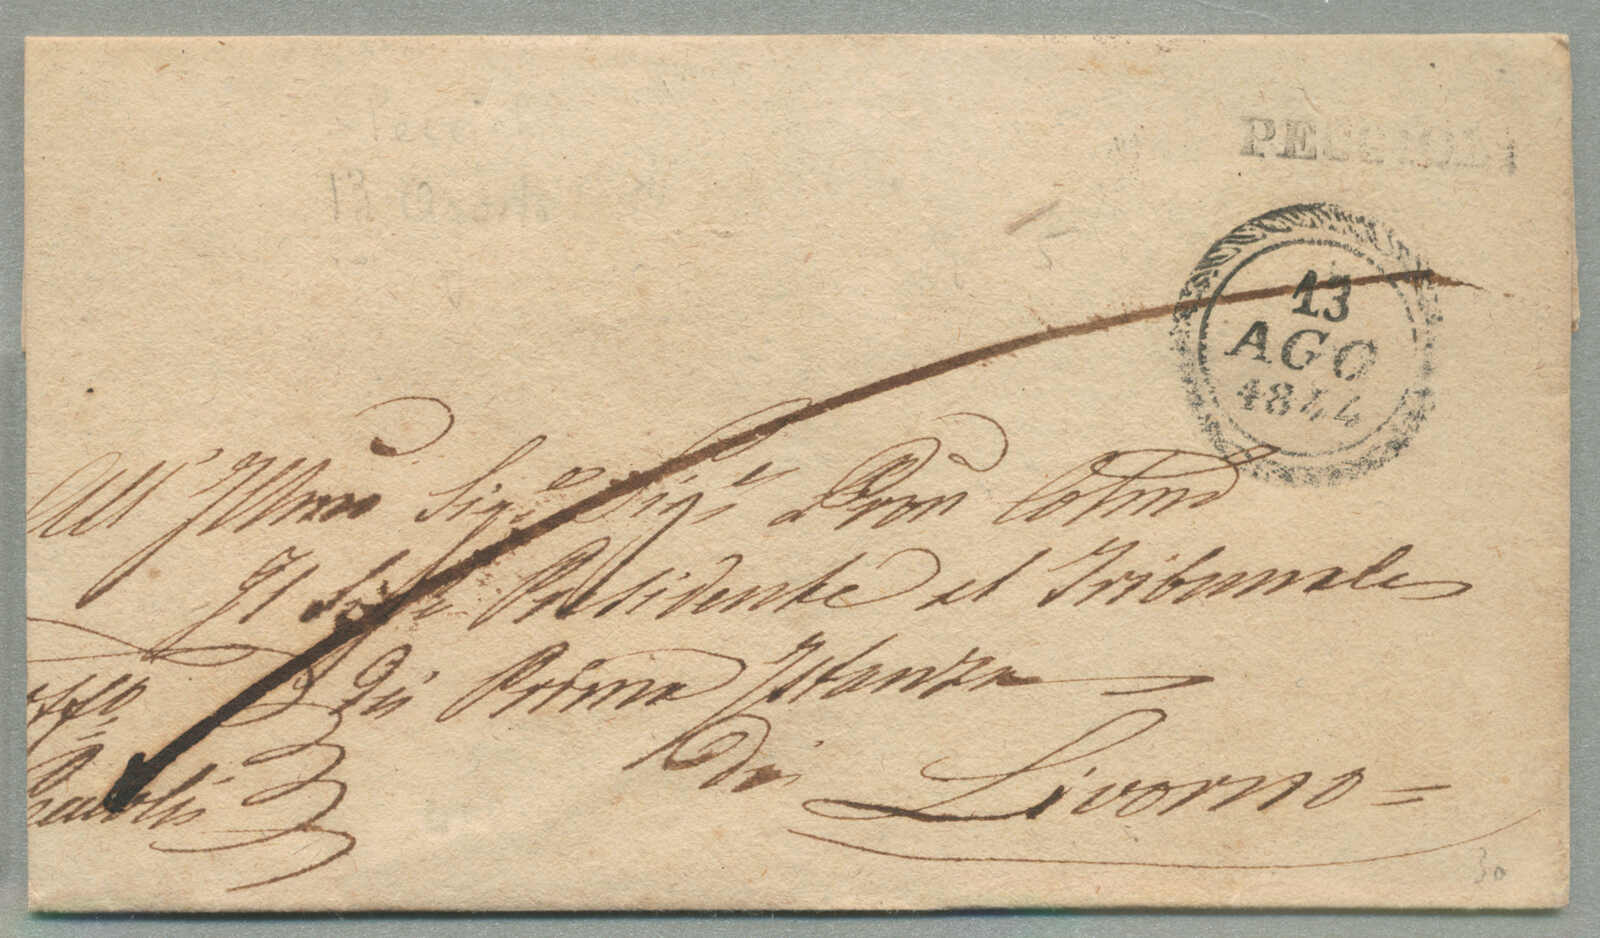 PECCIOLI
13
AGO
1844
All' Illmo Sigr Sigr Pron Colmo
Il Sigr Presidente del Tribunale
di Prima Istanza
di Livorno =
30